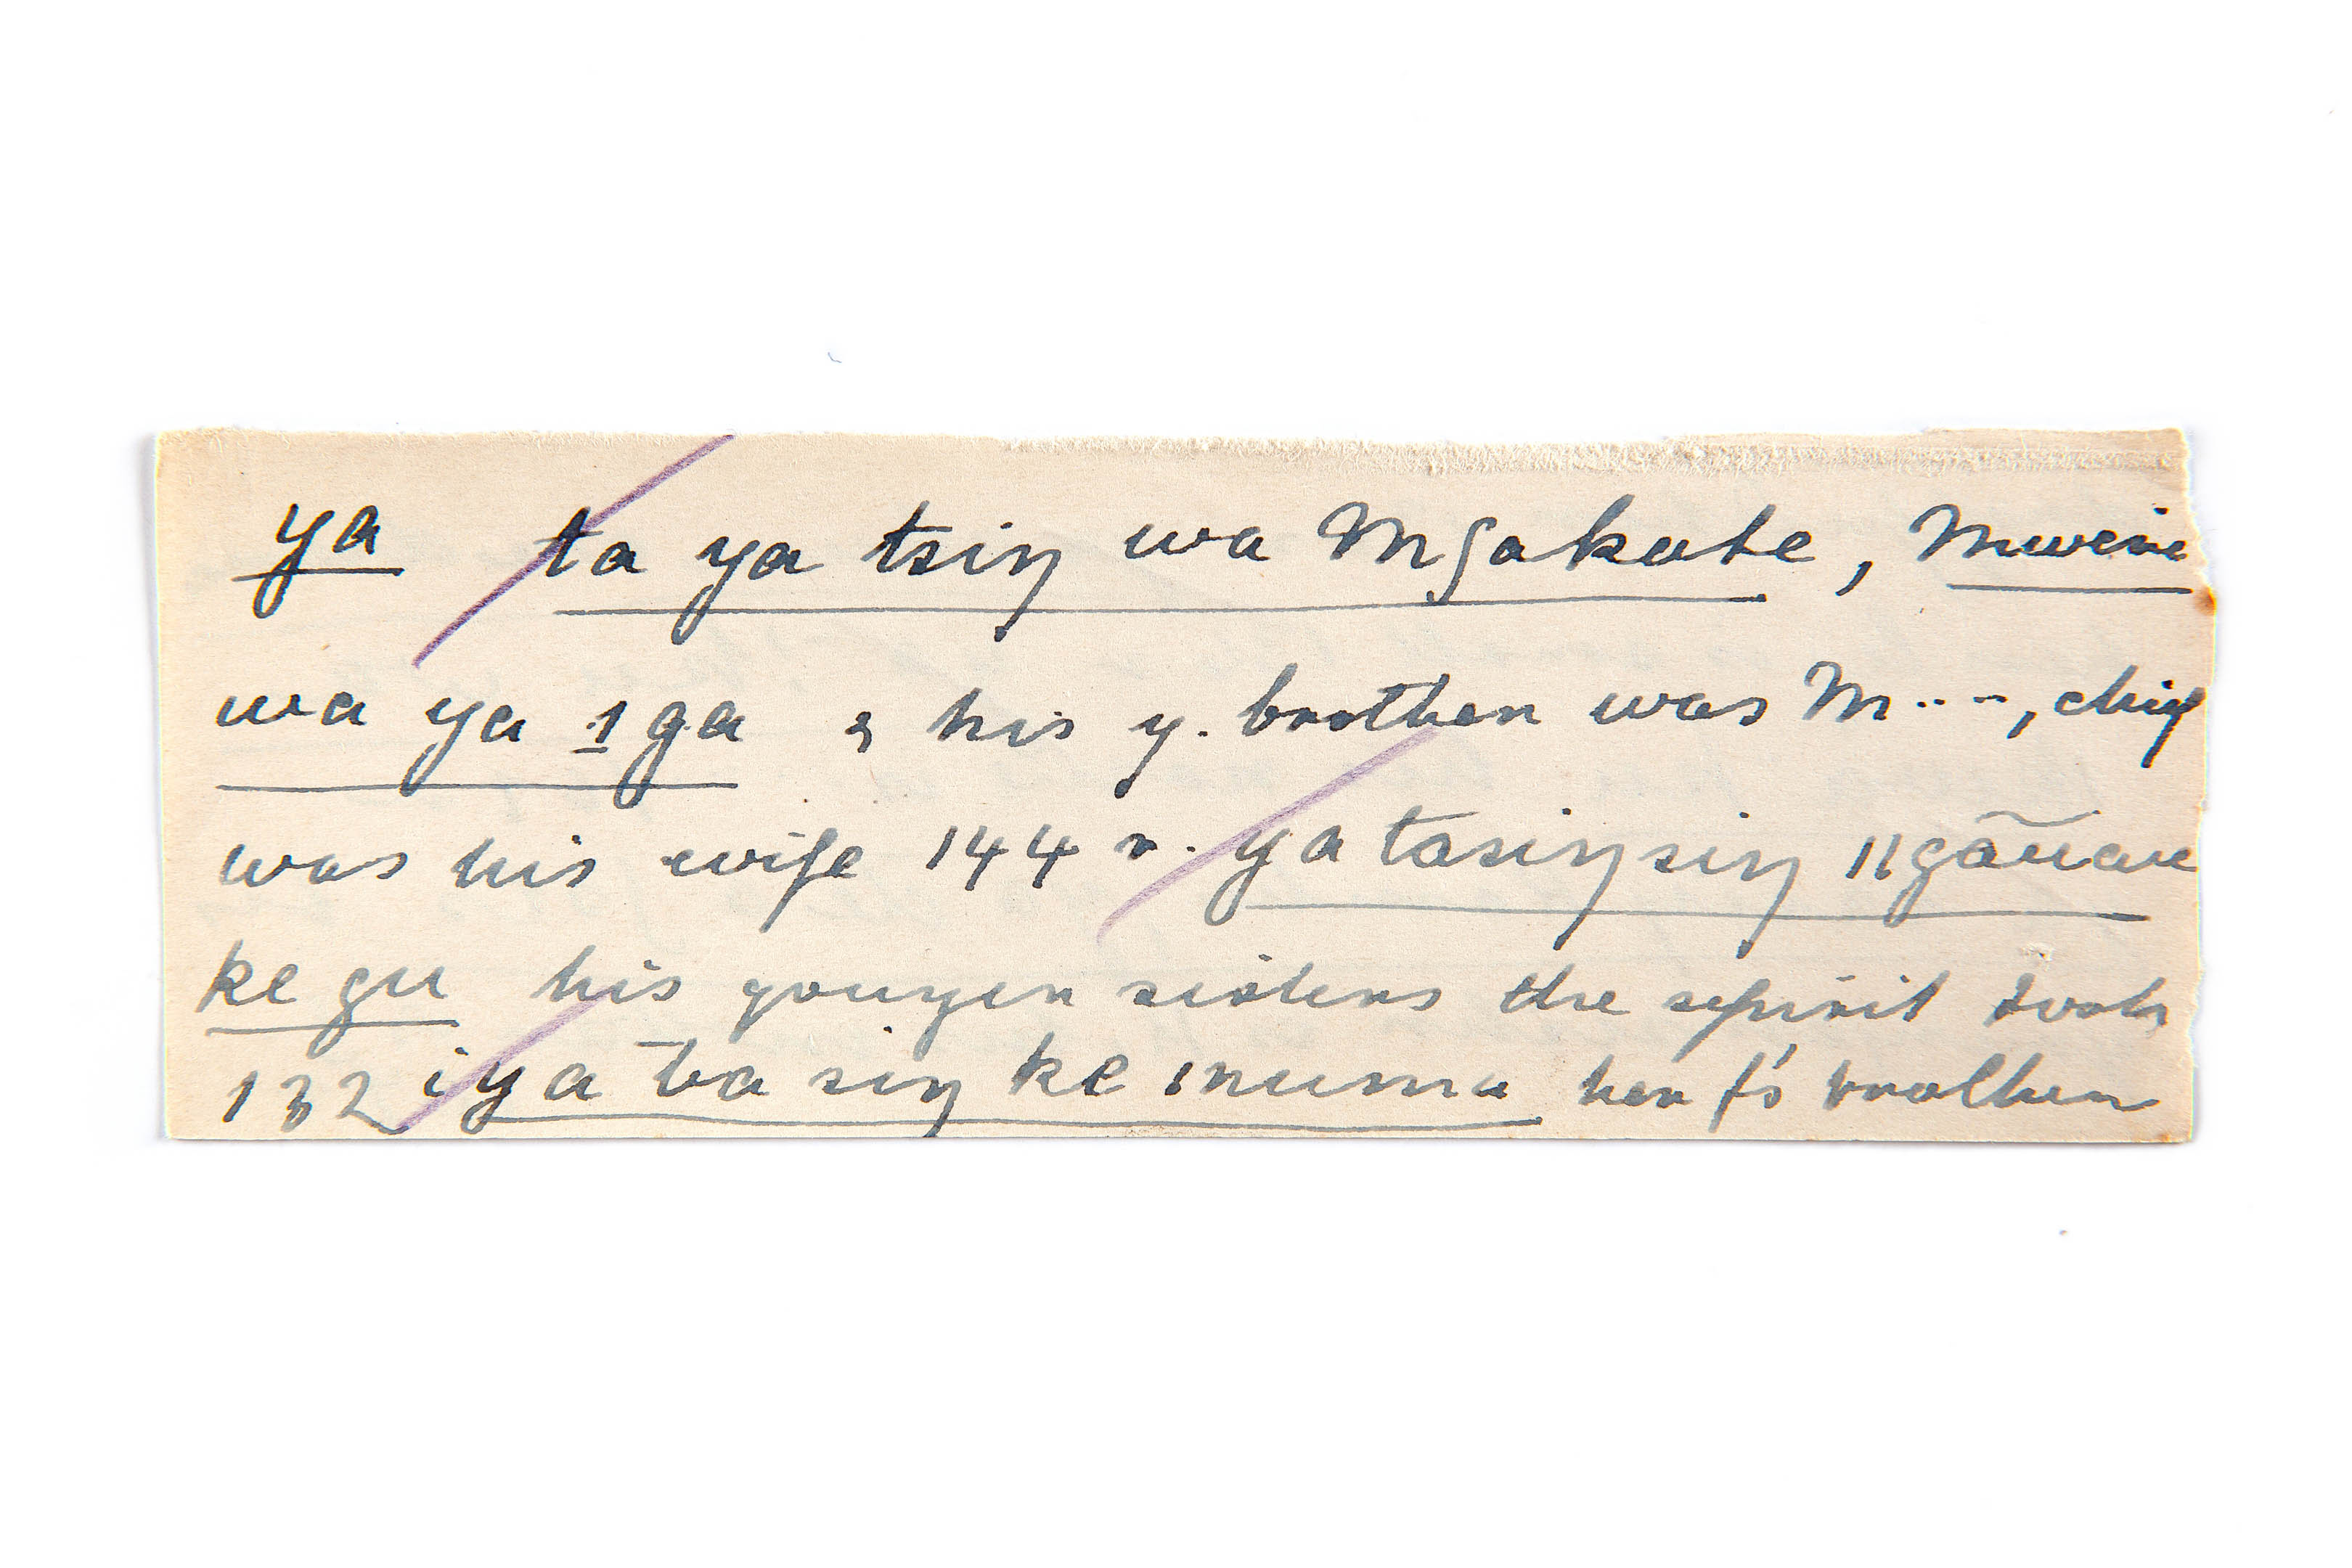 ya ta ya tsiŋ wa Mgakate, Mwene
wa ya 1ga & his y. brother was M..--, chief
was his wife 144 r. ya tasiŋsiŋ llgãuau
ke gu his younger sisters the spirit took
132 iya ta siŋ ke ınuma her f's brother